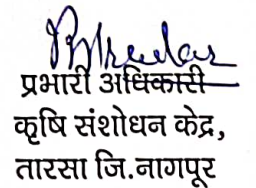 प्रभारी अधिकारी
कृषि संशोधन केद्र,
तारसा जि.नागपूर